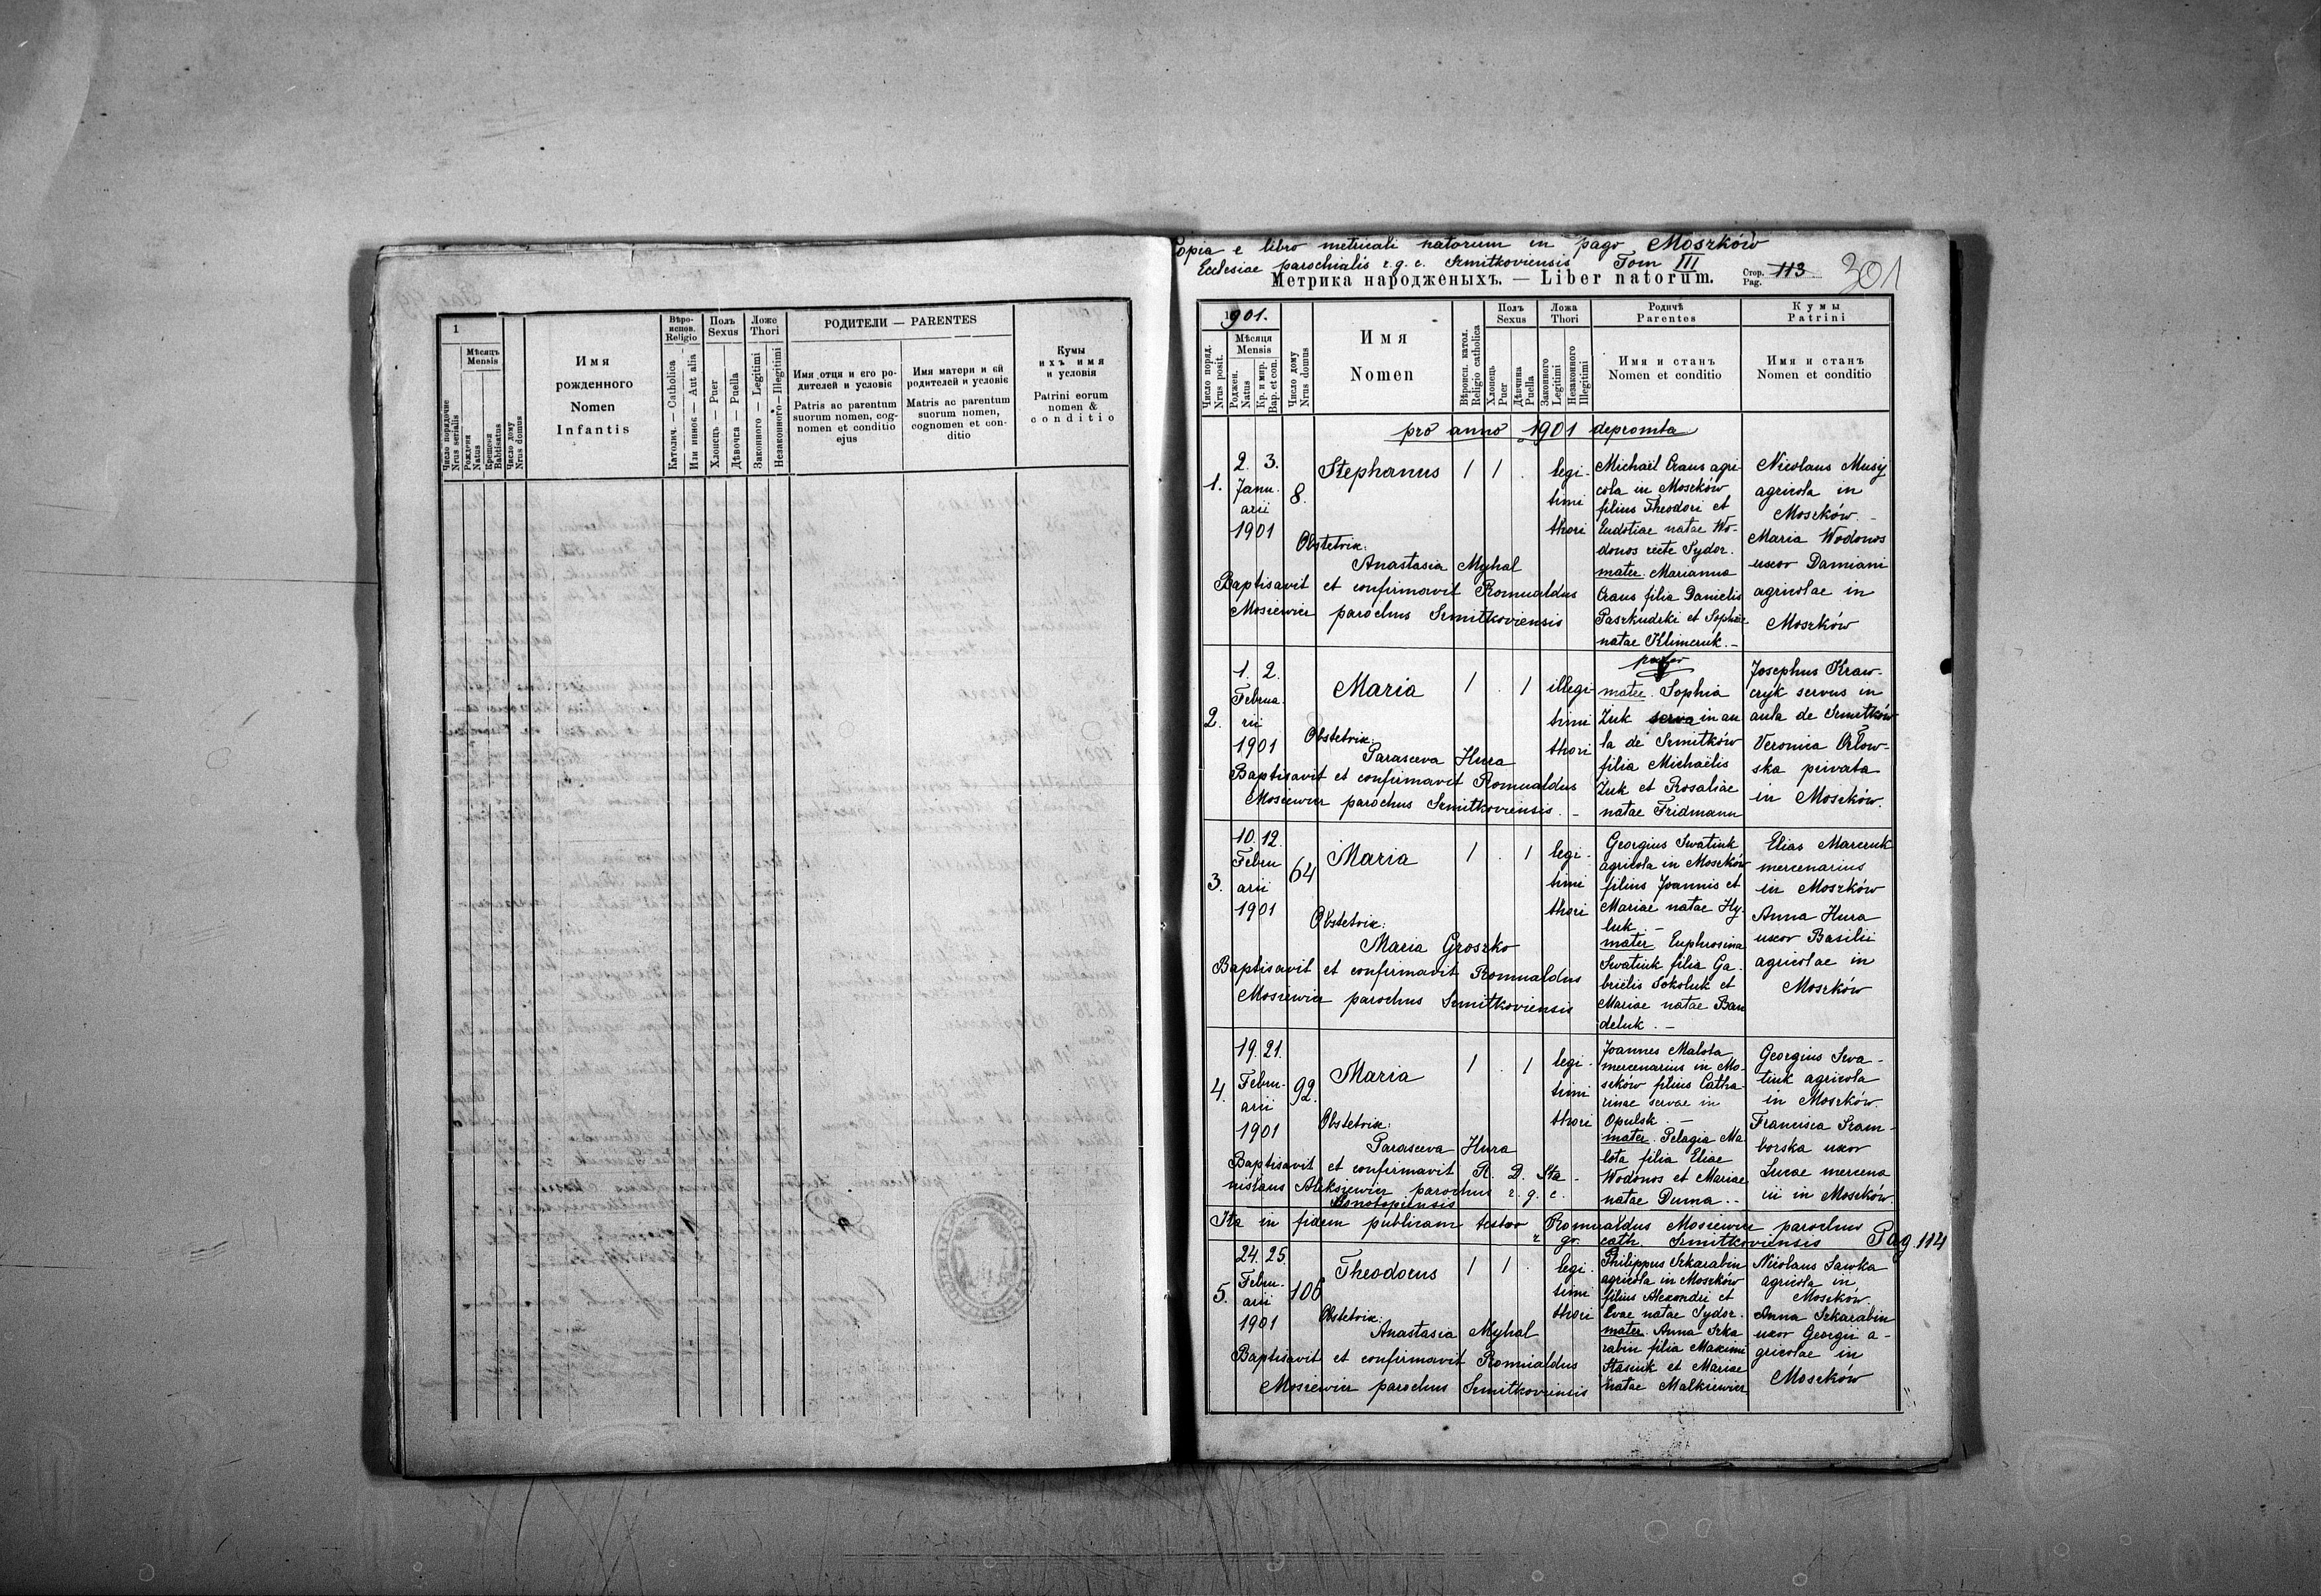 1
Мѣсяцъ
Mensis
Число порядочне
Nrus serialis
Рожденя
Natus
Крещеня
Babtisatus
Число дому
Nrus domus
Имя
рожденного
Nomen
Infantis
Вѣро-
испов.
Religio
Католич. — Catholica
Или инноє — Aut alia
Полъ
Sexus
Хлопець — Puer
Дѣвочка — Puella
Ложе
Thori
Законного — Legitimi
Незаконного — Illegitimi
РОДИТЕЛИ — PARENTES
Имя отця и его ро-
дителей и условіє
Patris ac parentum
suorum nomen, cog-
nomen et conditio
ejus
Имя матери и єй
родителей и условіє
Matris ac parentum
suorum nomen,
cognomen et con-
ditio
Кумы
ихъ имя
и условія
Patrini eorum
nomen &
conditio
Copia e libro metricali natorum in pago Moszków
Ecclesiae parochialis r. g. c. Szmitkoviensis Tom III
Метрика народженыхъ. — Liber natorum.
Стор. Pag. 113
301
1901.
Число поряд.
Nrus posit.
Мѣсяця
Mensis
Роджен.
Natus
Кр. и мир.
Bap. et con.
Число дому
Nrus domus
Имя
Nomen
Вѣроисп. катол.
Religio catholica
Полъ
Sexus
Хлопець
Puer
Дѣвчина
Puella
Ложа
Thori
Законного
Legitimi
Незаконного
Illegitimi
Родичѣ
Parentes
Имя и станъ
Nomen et conditio
Кумы
Patrini
Имя и станъ
Nomen et conditio
pro anno 1901 deprompta
1.
2. 3.
Janu-
arii
1901
8.
Stephanus
1 1 .
legi-
timi
thori
Obstetrix:
Anastasia Myhal
Baptisavit et confirmavit Romualdus
Mosiewicz parochus Szmitkoviensis
Michaël Craus agri-
cola in Moszków
filius Theodori et
Eudotiae natae Wo-
donos recte Sydor.
mater Marianna
Craus filia Danielis
Paszkudzki et Sophiae
natae Klimczuk. -
Nicolaus Musij
agricola in
Moszków. -
Maria Wodonos
uxor Damiani
agricolae in
Moszków
2.
1. 2.
Februa-
rii
1901
Maria
1 . 1
illegi-
timi
thori
Obstetrix:
Parasceva Hura
Baptisavit et confirmavit Romualdus
Mosiewicz parochus Szmitkoviensis. -
pater
mater Sophia
Żuk serva in au
la de Szmitków
filia Michaëlis
Żuk et Rosaliae
natae Fridmann
Josephus Kraw-
czyk servus in
aula de Szmitków
Veronica Orłow-
ska privata
in Moszków.
3.
10. 12.
Febru
arii
1901
64
Maria
1 . 1
legi-
timi
thori
Obstetrix:
Maria Groszko
Baptisavit et confirmavit Romualdus
Mosiewicz parochus Szmitkoviensis
Georgius Swatiuk
agricola in Moszków
filius Joannis et
Mariae natae Hy-
luk. -
mater Euphrosina
Swatiuk filia Ga-
brielis Sokoluk et
Mariae natae Ban
deluk. -
Elias Marczuk
mercenarius
in Moszków
Anna Hura
uxor Basilii
agricolae in
Moszków
4.
19. 21.
Febru-
arii
1901
92.
Maria
1 . 1
legi-
timi
thori
Obstetrix:
Parasceva Hura
Baptisavit et confirmavit R. D. Sta-
nislaus Aleksiewicz parochus r. g. c.
Konotopiensis
Joannes Malota
mercenarius in Mo-
szków filius Catha
rinae servae in
Opulsk. -
mater Pelagia Ma
lota filia Eliae
Wodonos et Mariae
natae Duma. -
Georgius Swa-
tiuk agricola
in Moszków.
Francisca Szam-
borska uxor
Lucae mercena
rii in Moszków.
Ita in fidem publicam testor Romualdus Mosiewicz parochus
r. gr. cath. Szmitkoviensis Pag. 114
5.
24. 25
Febru-
arii
1901
106
Theodorus
1 1 .
legi-
timi
thori
Obstetrix:
Anastasia Myhal
Baptisavit et confirmavit Romualdus
Mosiewicz parochus Szmitkoviensis
Philippus Szkarabin
agricola in Moszków
filius Alexandri et
Evae natae Sydor.
mater Anna Szka
rabin filia Maximi
Stasiuk et Mariae
natae Malkiewicz
Nicolaus Sawka
agricola in
Moszków.
Anna Szkarabin
uxor Georgii a-
gricolae in
Moszków